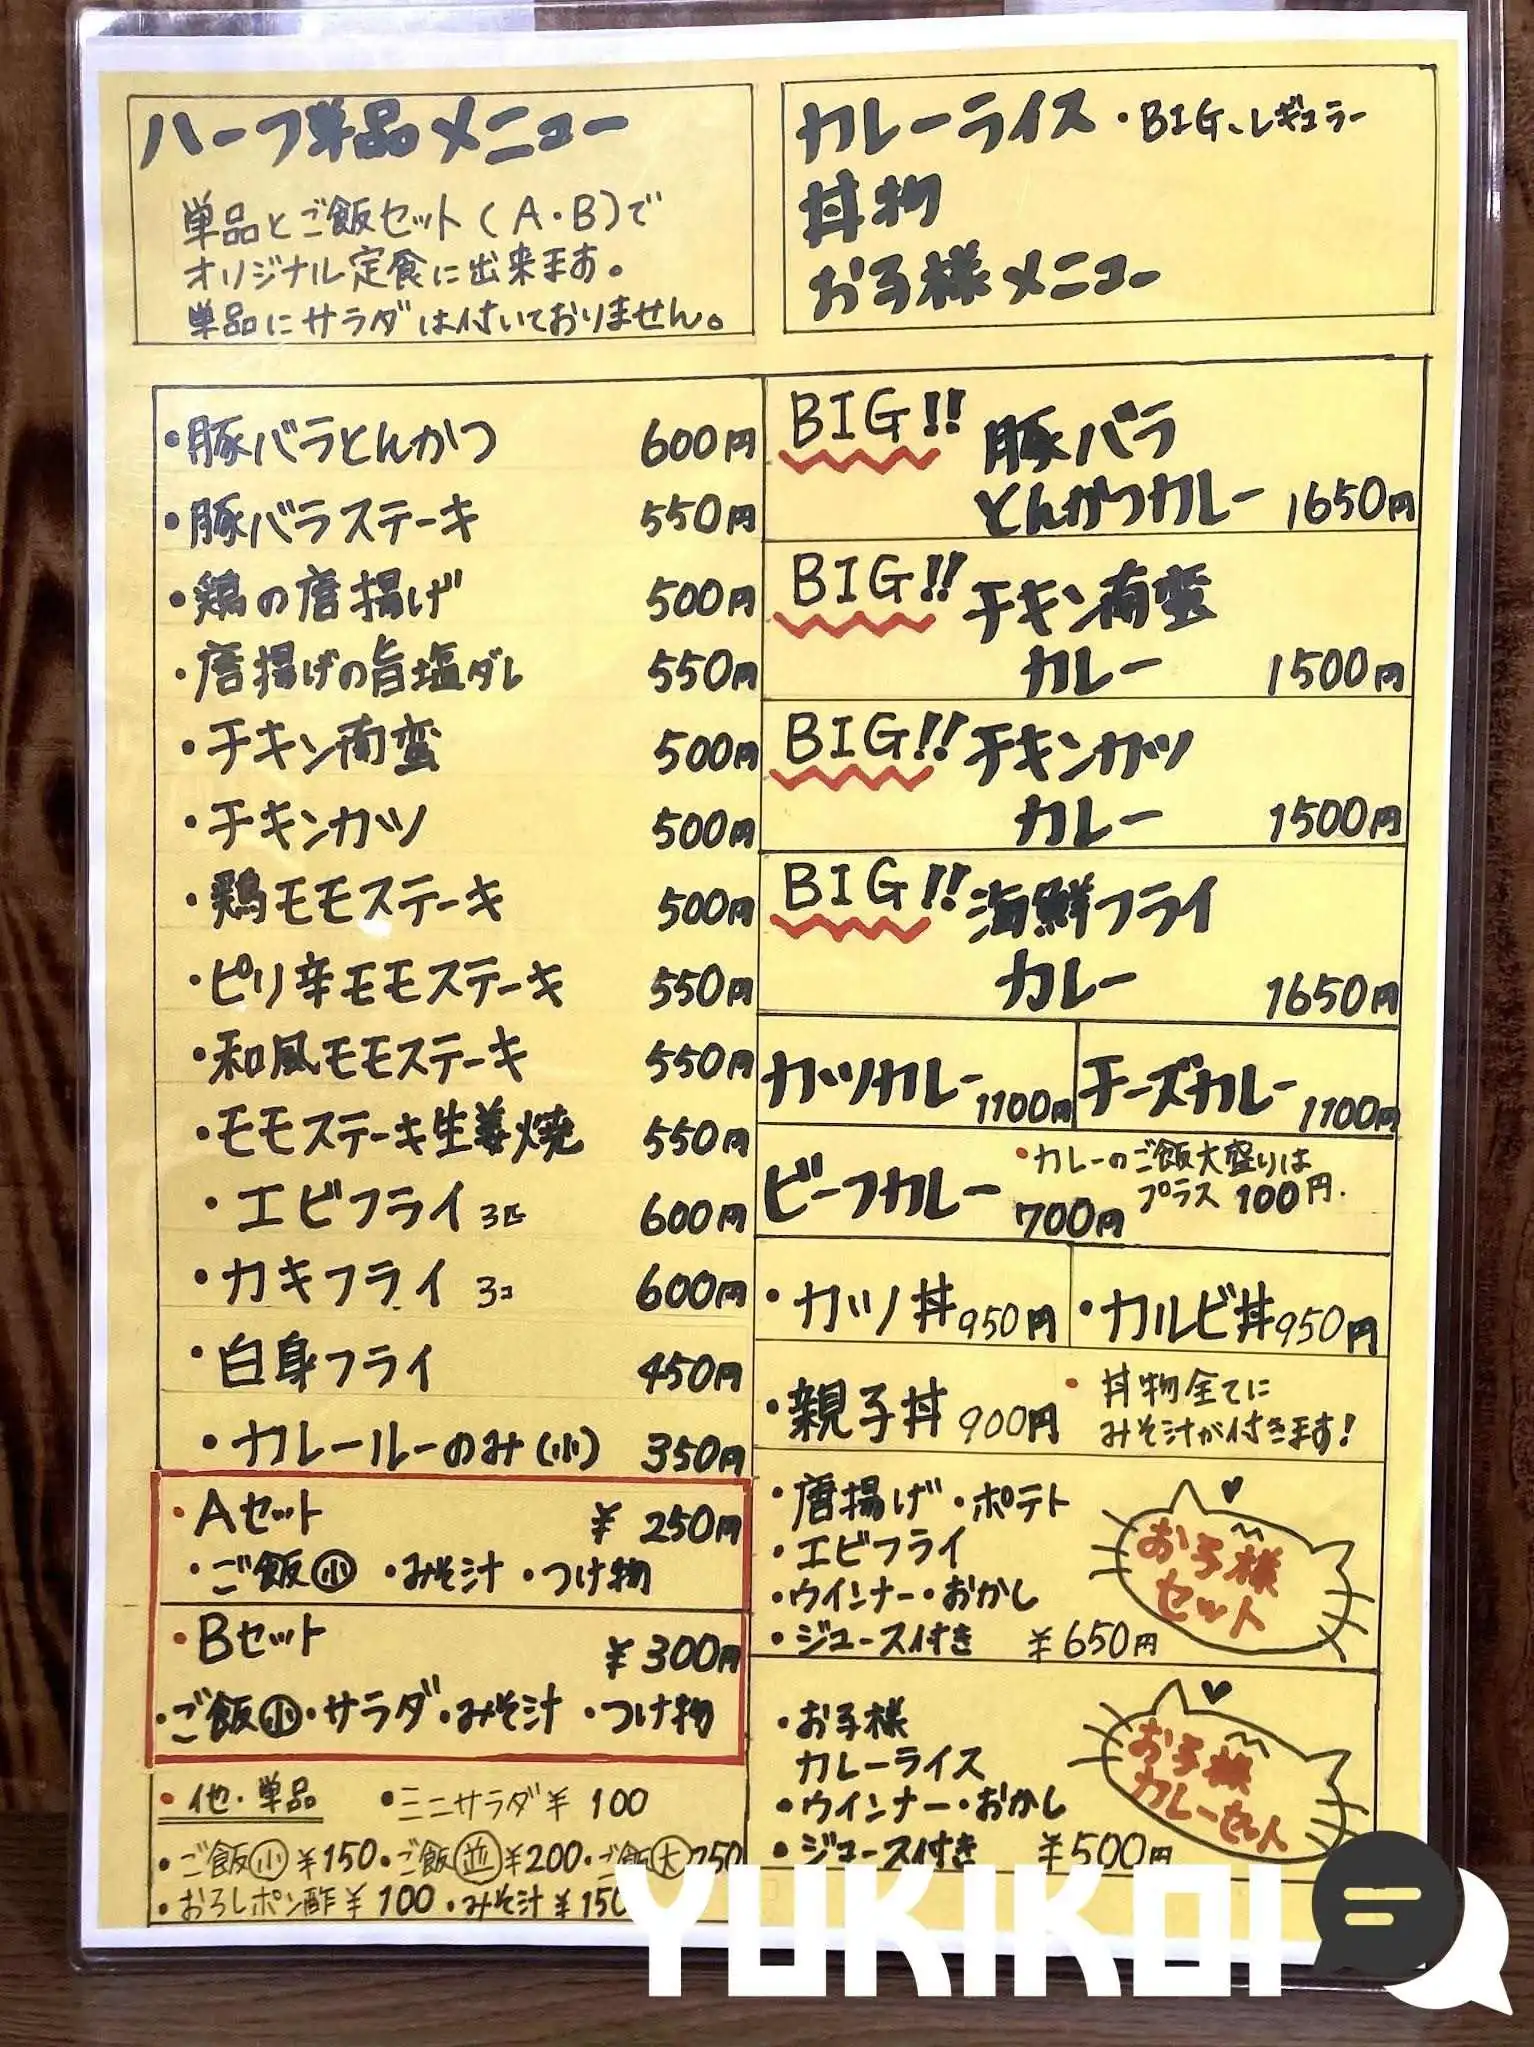 ハーフ単品メニュー
単品とご飯セット(A・B)で
オリジナル定食に出来ます。
単品にサラダは付いておりません。
カレーライス・BIG、レギュラー
丼物
お子様メニュー
・豚バラとんかつ 600円
・豚バラステーキ 550円
・鶏の唐揚げ 500円
・唐揚げの旨塩ダレ 550円
・チキン南蛮 500円
・チキンカツ 500円
・鶏モモステーキ 500円
・ピリ辛モモステーキ 550円
・和風モモステーキ 550円
・モモステーキ生姜焼 550円
・エビフライ 3匹 600円
・カキフライ 3コ 600円
・白身フライ 450円
・カレールーのみ(小) 350円
・Aセット ¥250円
・ご飯小 ・みそ汁 ・つけ物
・Bセット ¥300円
・ご飯小・サラダ・みそ汁 ・つけ物
・他・単品 ・ミニサラダ¥100
・ご飯小¥150・ご飯並¥200・ご飯大250
・おろしポン酢¥100 ・みそ汁¥150
BIG!! 豚バラ
とんかつカレー 1650円
BIG!! チキン南蛮
カレー 1500円
BIG!! チキンカツ
カレー 1500円
BIG!! 海鮮フライ
カレー 1650円
カツカレー 1100円
チーズカレー 1100円
ビーフカレー 700円
・カレーのご飯大盛りは
プラス100円.
・カツ丼 950円
・カルビ丼 950円
・親子丼 900円
・丼物全てに
みそ汁が付きます!
・唐揚げ・ポテト
・エビフライ
・ウインナー・おかし
・ジュース付き ¥650円
お子様
セット
・お子様
カレーライス
・ウインナー・おかし
・ジュース付き ¥500円
お子様
カレーセット
YUKIKOI